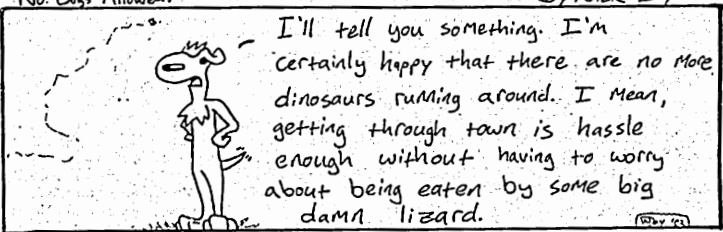 I'll tell you something. I'm
certainly happy that there are no more
dinosaurs running around. I mean,
getting through town is hassle
enough without having to worry
about being eaten by some big
damn lizard.